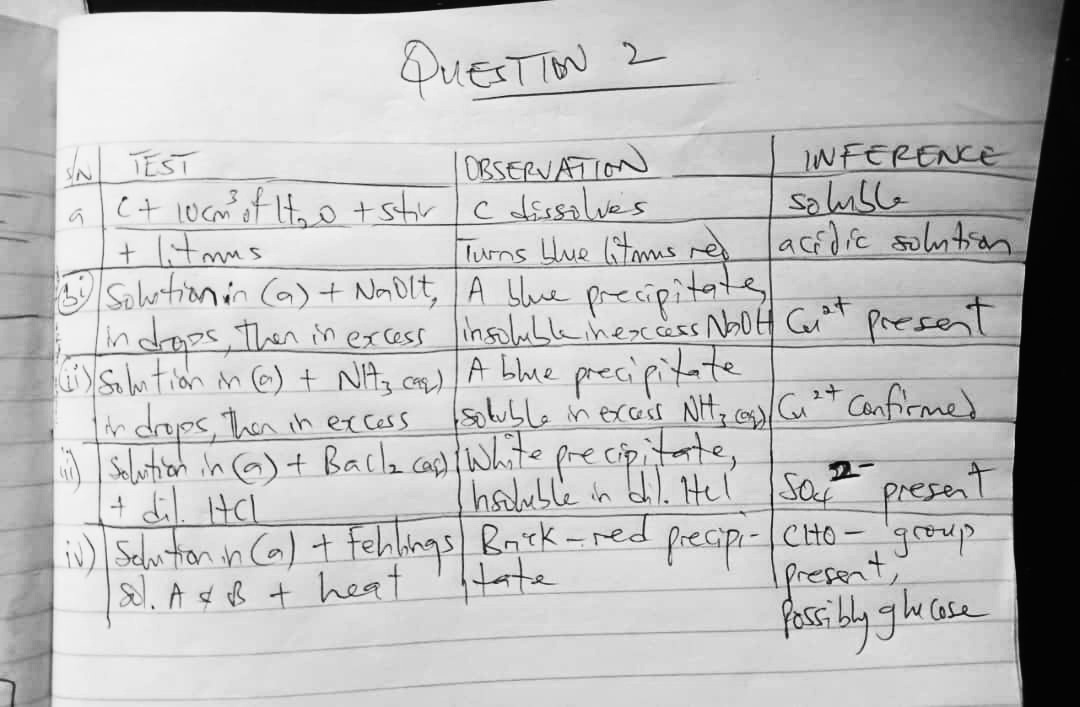 QUESTION 2
S/N TEST OBSERVATION INFERENCE
a C + 10cm³ of H₂O + stir C dissolves soluble
+ litmus Turns blue litmus red acidic solution
bi) Solution in (a) + NaOH, A blue precipitate,
in drops, then in excess insoluble in excess NaOH Cu²⁺ present
(ii) Solution in (a) + NH₃ (aq) A blue precipitate
in drops, then in excess soluble in excess NH₃ (aq) Cu²⁺ Confirmed
iii) Solution in (a) + BaCl₂ (aq) White precipitate,
+ dil. HCl Insoluble in dil. HCl SO₄²⁻ present
iv) Solution in (a) + Fehlings Brick-red precipi- CHO- group
sol. A & B + heat tate present,
possibly glucose